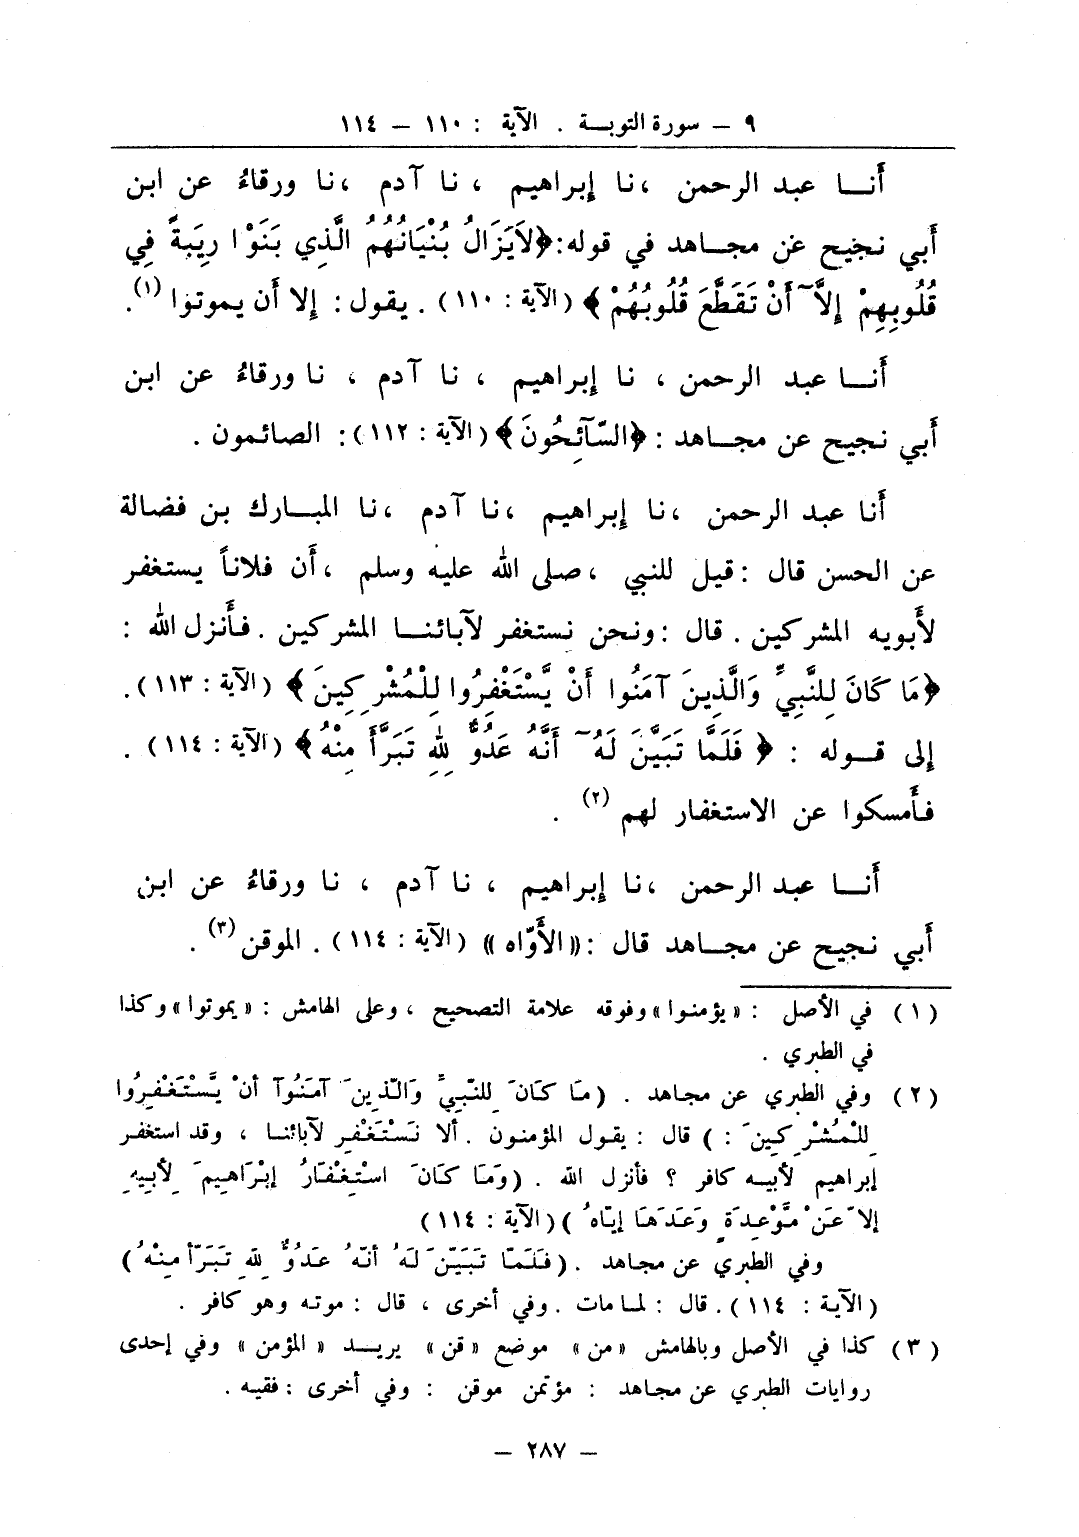 ٩ – سورة التوبـــة . الآية : ١١٠ – ١١٤
أَنـــا عبد الرحمن ،نا إِبراهيم ، نا آدم ،نا ورقاءُ عن ابن
أَبي نجيح عن مجـاهد في قوله:﴿لاَيَزَالُ بُنْيَانُهُمُ الَّذِي بَنَوْا رِيبَةً فِي
قُلُوبِهِمْ إِلاَّ أَنْ تَقَطَّعَ قُلُوبُهُمْ﴾ (الآية : ١١٠) . يقول : إلا أَن يموتوا (١).
أَنـــا عبد الرحمن ، نا إِبراهيم ، نا آدم ، نا ورقاءُ عن ابن
أَبي نجيح عن مجـاهد : ﴿السَّآئِحُونَ﴾ (الآية : ١١٢): الصائمون .
أَنا عبد الرحمن ،نا إِبراهيم ،نا آدم ،نا المبــارك بن فضالة
عن الحسن قال : قيل للنبي ، صلى الله عليه وسلم ، أَن فلاناً يستغفر
لأَبويه المشركين . قال : ونحن نستغفر لآبائنــا المشركين . فـأَنزل الله :
﴿مَا كَانَ لِلنَّبِيِّ وَالَّذِينَ آمَنُوا أَنْ يَّسْتَغْفِرُوا لِلْمُشْرِكِينَ﴾ (الآية : ١١٣).
إِلى قــوله : ﴿فَلَمَّا تَبَيَّنَ لَهُ أَنَّهُ عَدُوٌّ لِلهِ تَبَرَّأَ مِنْهُ﴾ (الآية : ١١٤) .
فـأَمسكوا عن الاستغفار لهم (٢) .
أَنـــا عبد الرحمن ،نا إِبراهيم ، نا آدم ، نا ورقاءُ عن ابن
أَبي نجيح عن مجـاهد قال :« الأَوَّاه » (الآية : ١١٤) . الموقن (٣) .
(١) في الأصل : « يؤمنوا » وفوقه علامة التصحيح ، وعلى الهامش : « يموتوا » وكذا
في الطبري .
(٢) وفي الطبري عن مجاهد . (مَا كَانَ لِلنَّبِيِّ وَالَّذِينَ آمَنُوآ أنْ يَّسْتَغْفِرُوا
لِلْمُشْرِكِينَ : ) قال : يقول المؤمنون . ألا نَسْتَغْفِر لآبائنا ، وقد استغفر
إبراهيم لأبيه كافر ؟ فأنزل الله . (وَمَا كَانَ اسْتِغْفَارُ إبْرَاهِيمَ لأبِيهِ
إلاّ عَنْ مَّوْعِدَةٍ وَعَدَهَا إيّاهُ ) (الآية : ١١٤)
وفي الطبري عن مجاهد . (فَلَمّا تَبَيّنَ لَهُ أنّهُ عَدُوٌّ لِلهِ تَبَرّأ مِنْهُ )
(الآية : ١١٤). قال : لما مات . وفي أخرى ، قال : موته وهو كافر .
(٣) كذا في الأصل وبالهامش « من » موضع « قن » يريــد « المؤمن » وفي إحدى
روايات الطبري عن مجاهد : مؤتمن موقن : وفي أخرى : فقيه .
– ٢٨٧ –